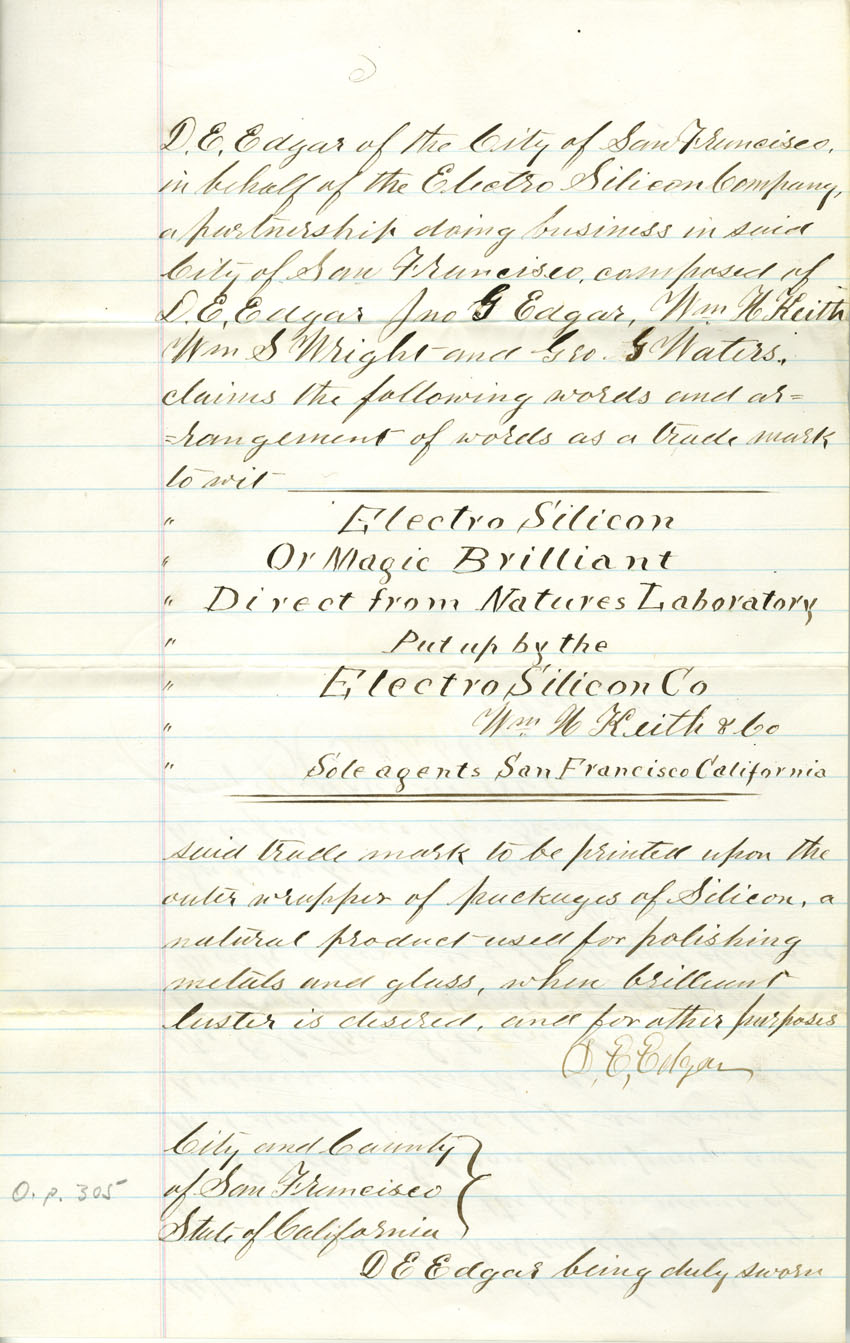 D. E. Edgar of the City of San Francisco,
in behalf of the Electro Silicon Company,
a partnership doing business in said
City of San Francisco, composed of
D. E. Edgar Jno G Edgar, Wm H Keith
Wm S Wright and Geo. G Waters,
claims the following words and ar=
=rangement of words as a trade mark
to wit
" Electro Silicon
" Or Magic Brilliant
" Direct from Natures Laboratory
" Put up by the
" Electro Silicon Co
" Wm H Keith & Co
" Sole agents San Francisco California
said trade mark to be printed upon the
outer wrapper of packages of Silicon, a
natural product used for polishing
metals and glass, when brilliant
luster is desired, and for other purposes
D. E. Edgar
City and County
of San Francisco
O. p. 305
State of California
D E Edgar being duly sworn